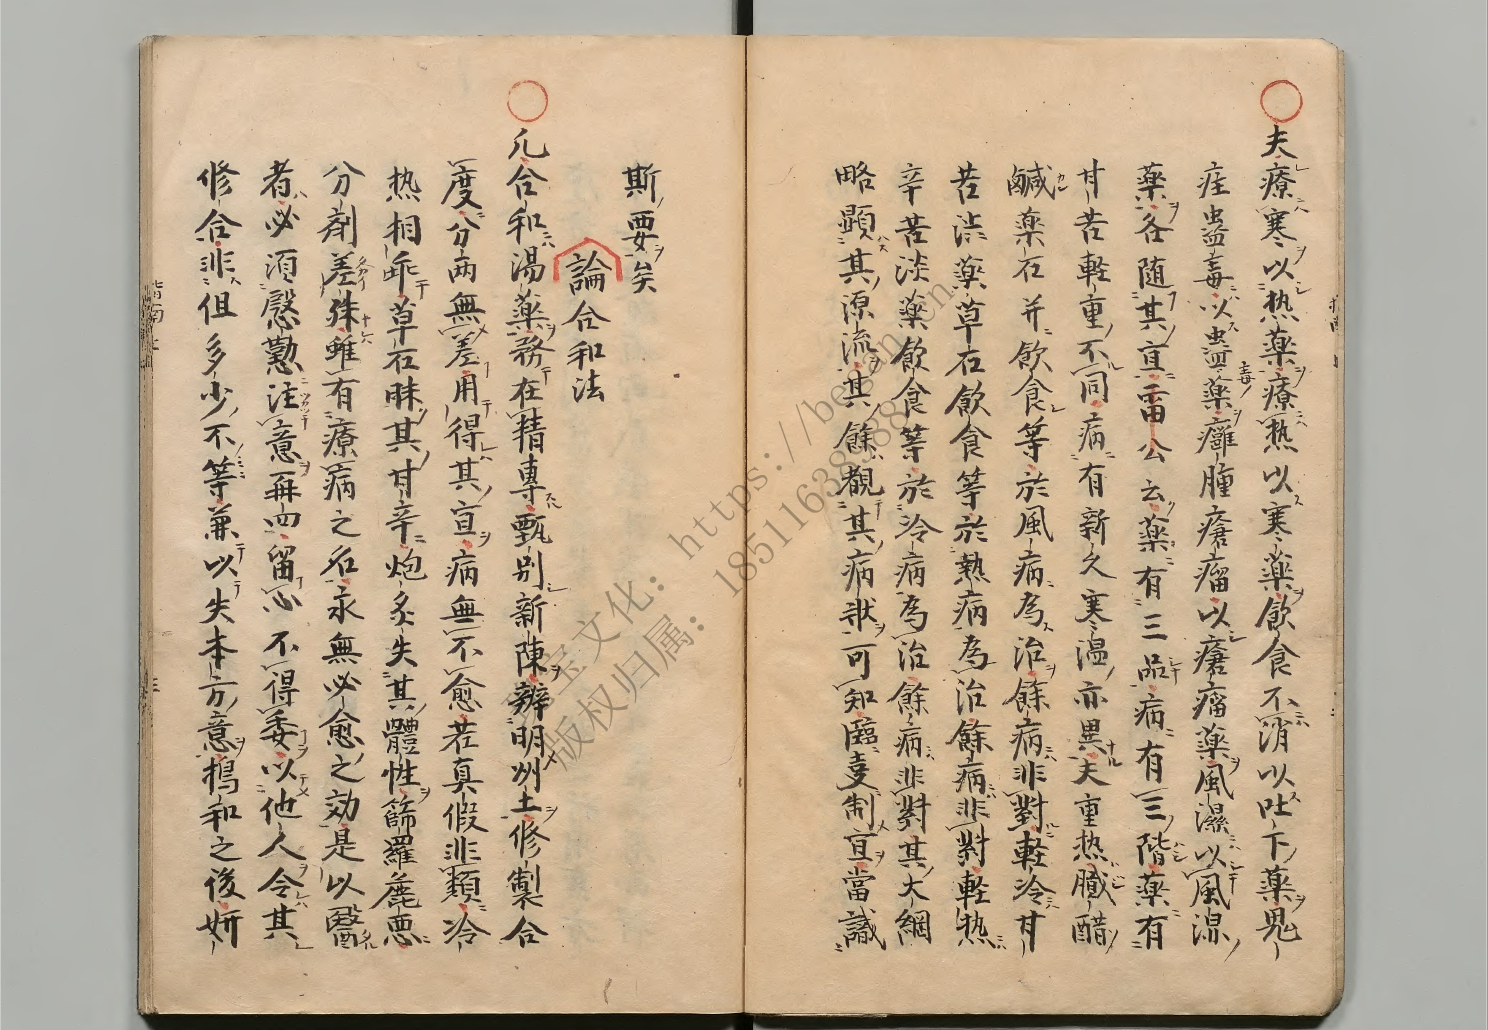 夫療寒以热藥療热以寒藥飲食不消以吐下藥鬼
疰蟲毒以蟲毒藥癰腫瘡瘤以瘡瘤藥風濕以風湿
藥各随其宜雷公云藥有三品病有三階藥有
甘苦軽重不同病有新久寒温亦異夫重热臓醋
鹹藥石并飲食等於風病為治餘病非對軽冷甘
苦渋藥草石飲食等於熱病為治餘病非對軽热
辛苦淡藥飲食等於冷病為治餘病非對其大綱
略顯其源流其餘覩其病状可知臨事制宜當識
斯要矣
論合和法
凡合和湯藥務在精專甄别新陳辨明州土修製合
度分両無差用得其宜病無不愈若真假非類冷
热相乖草石昧其甘辛炮炙失其體性篩羅麁悪
分剤差殊雖有療病之名永無必愈之効是以醫
者必須慇勤注意再四留心不得委以他人令其
修合非但多少不等兼以失本方意搗和之後妍
指南
三
宝文化：https://began.cn
版权归属：18511638388